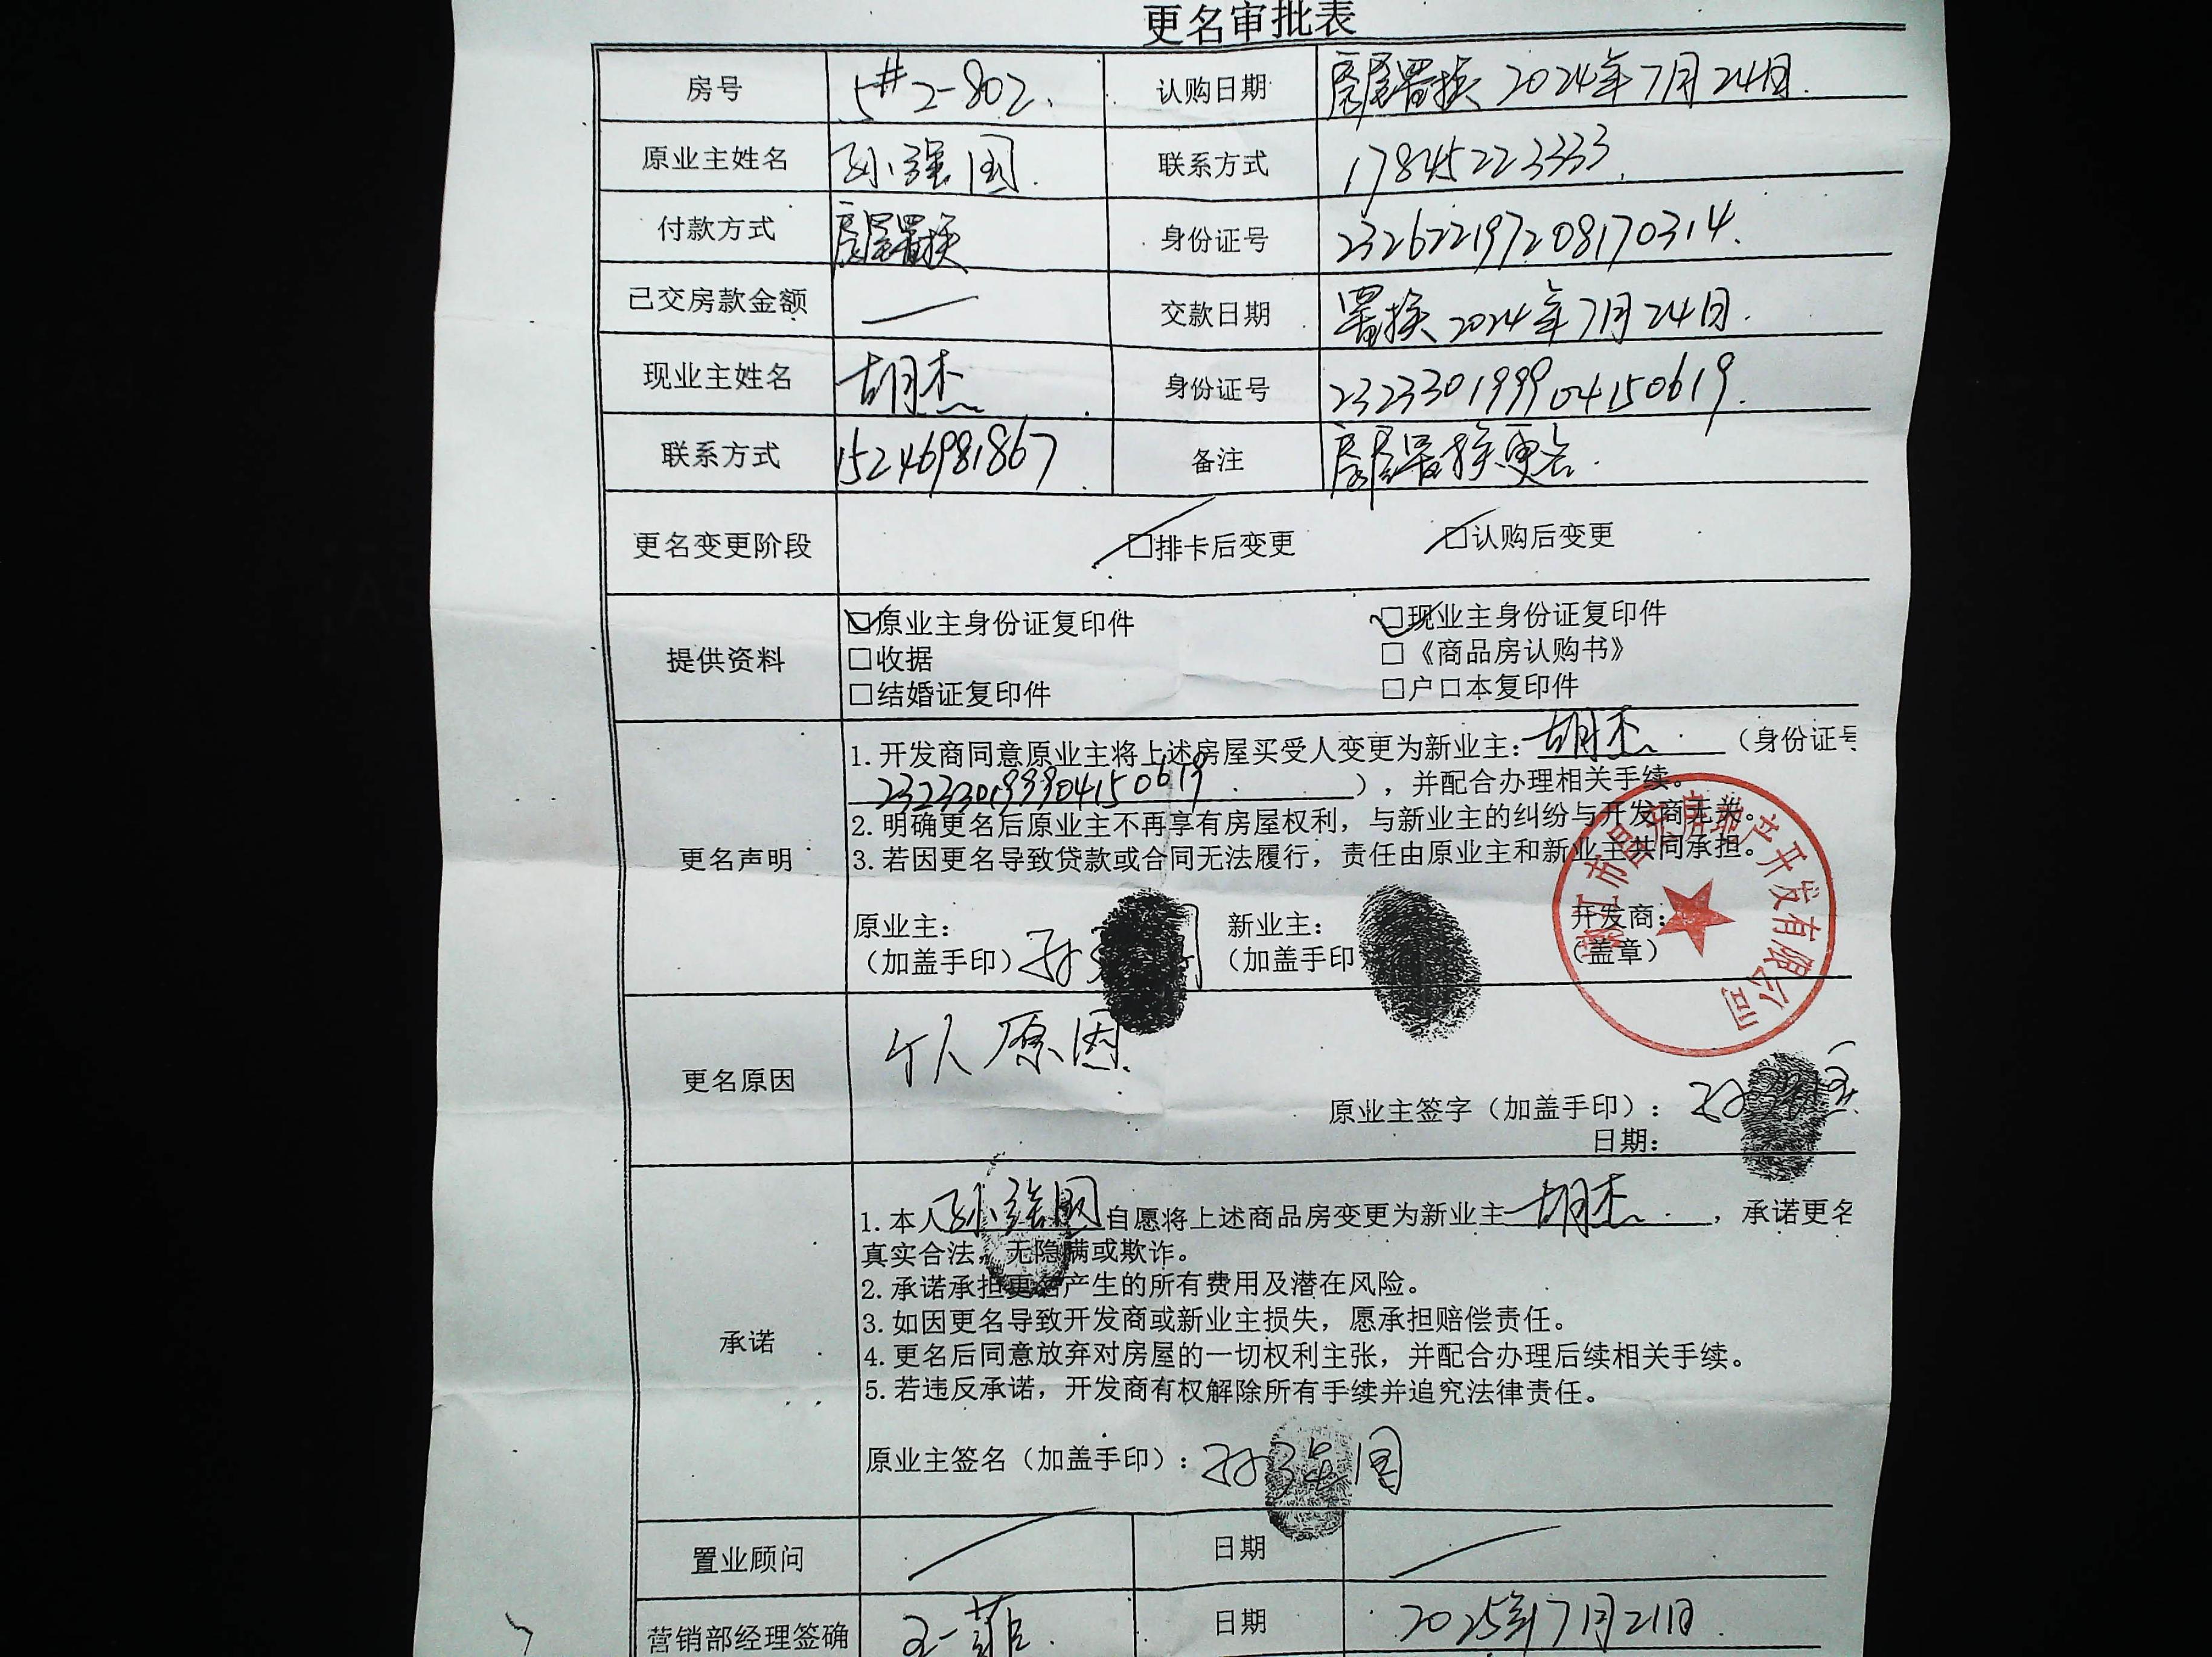 更名审批表
房号 5#2-802. 认购日期 房屋置换 2024年7月24日.
原业主姓名 孙强国. 联系方式 17845223333.
付款方式 房屋置换 身份证号 232622197208170314.
已交房款金额 交款日期 置换 2024年7月24日.
现业主姓名 胡杰 身份证号 232330199904150619.
联系方式 15246981867 备注 房屋置换更名.
更名变更阶段 □排卡后变更 □认购后变更
☑原业主身份证复印件 ☑现业主身份证复印件
提供资料 □收据 □《商品房认购书》
□结婚证复印件 □户口本复印件
1. 开发商同意原业主将上述房屋买受人变更为新业主：胡杰.（身份证号
232330199904150619.），并配合办理相关手续。
2. 明确更名后原业主不再享有房屋权利，与新业主的纠纷与开发商无关。
更名声明 3. 若因更名导致贷款或合同无法履行，责任由原业主和新业主共同承担。
原业主： 新业主： 开发商：
（加盖手印）孙 （加盖手印 （盖章）
市 房地产开发有限公司
个人原因.
更名原因 原业主签字（加盖手印）：孙
日期：
1. 本人孙强国自愿将上述商品房变更为新业主胡杰.，承诺更名
真实合法，无隐瞒或欺诈。
2. 承诺承担更名产生的所有费用及潜在风险。
3. 如因更名导致开发商或新业主损失，愿承担赔偿责任。
承诺 4. 更名后同意放弃对房屋的一切权利主张，并配合办理后续相关手续。
5. 若违反承诺，开发商有权解除所有手续并追究法律责任。
原业主签名（加盖手印）：孙强国
置业顾问 日期
营销部经理签确 日期 2025年7月21日